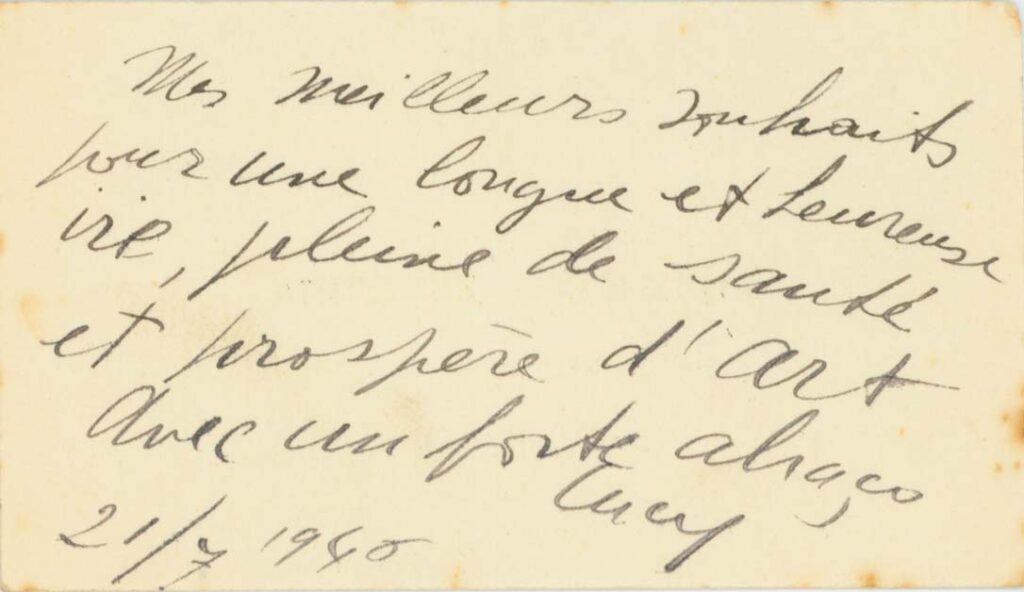 Mes meilleurs souhaits
pour une longue et heureuse
vie, pleine de santé
et prospère d'art
avec un forte abraço
Lucy
21/7 1940